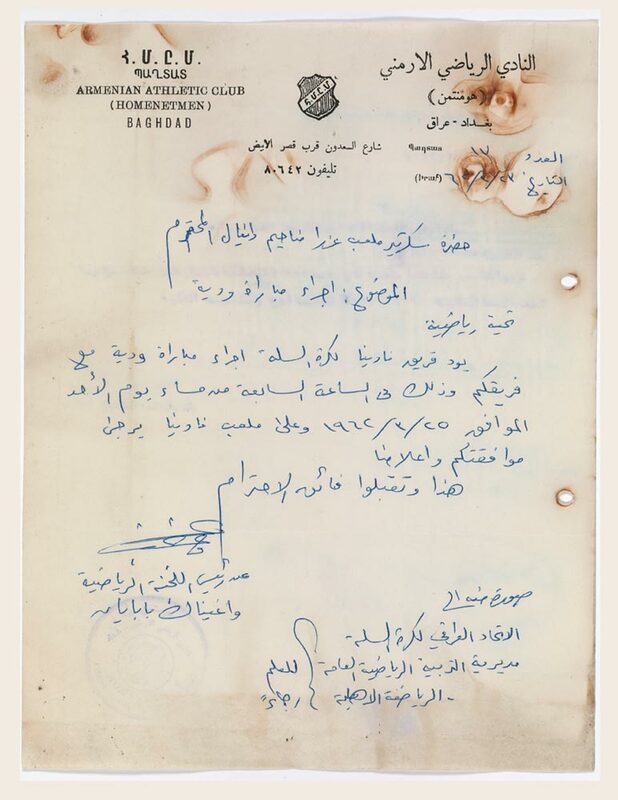 Հ.Մ.Ը.Մ.
ՊԱՂՏԱՏ
ARMENIAN ATHLETIC CLUB
(HOMENETMEN)
BAGHDAD
Հ.Մ.Ը.Մ.
النادي الرياضي الارمني
(هومنتمن)
بغداد - عراق
شارع السعدون قرب قصر الابيض
تليفون ٨٠٦٤٢
Պաղտատ
(Իրաք)
العدد ١٧
التاريخ ٢٣/٣/٦٢
حضرة سكرتير ملعب عزرا مناحيم دانيال المحترم
الموضوع: اجراء مباراة ودية
تحية رياضية
يود فريق نادينا لكرة السلة اجراء مباراة ودية مع
فريقكم وذلك في الساعة السابعة من مساء يوم الأحد
الموافق ٢٥/٣/١٩٦٢ وعلى ملعب نادينا يرجى
موافقتكم واعلامنا
هذا وتقبلوا فائق الاحترام
عن رئيس اللجنة الرياضية
واغيناك بابايان
صورة منه الى
الاتحاد العراقي لكرة السلة
مديرية التربية الرياضية العامة
- الرياضة الاهلية
للعلم
رجاءً